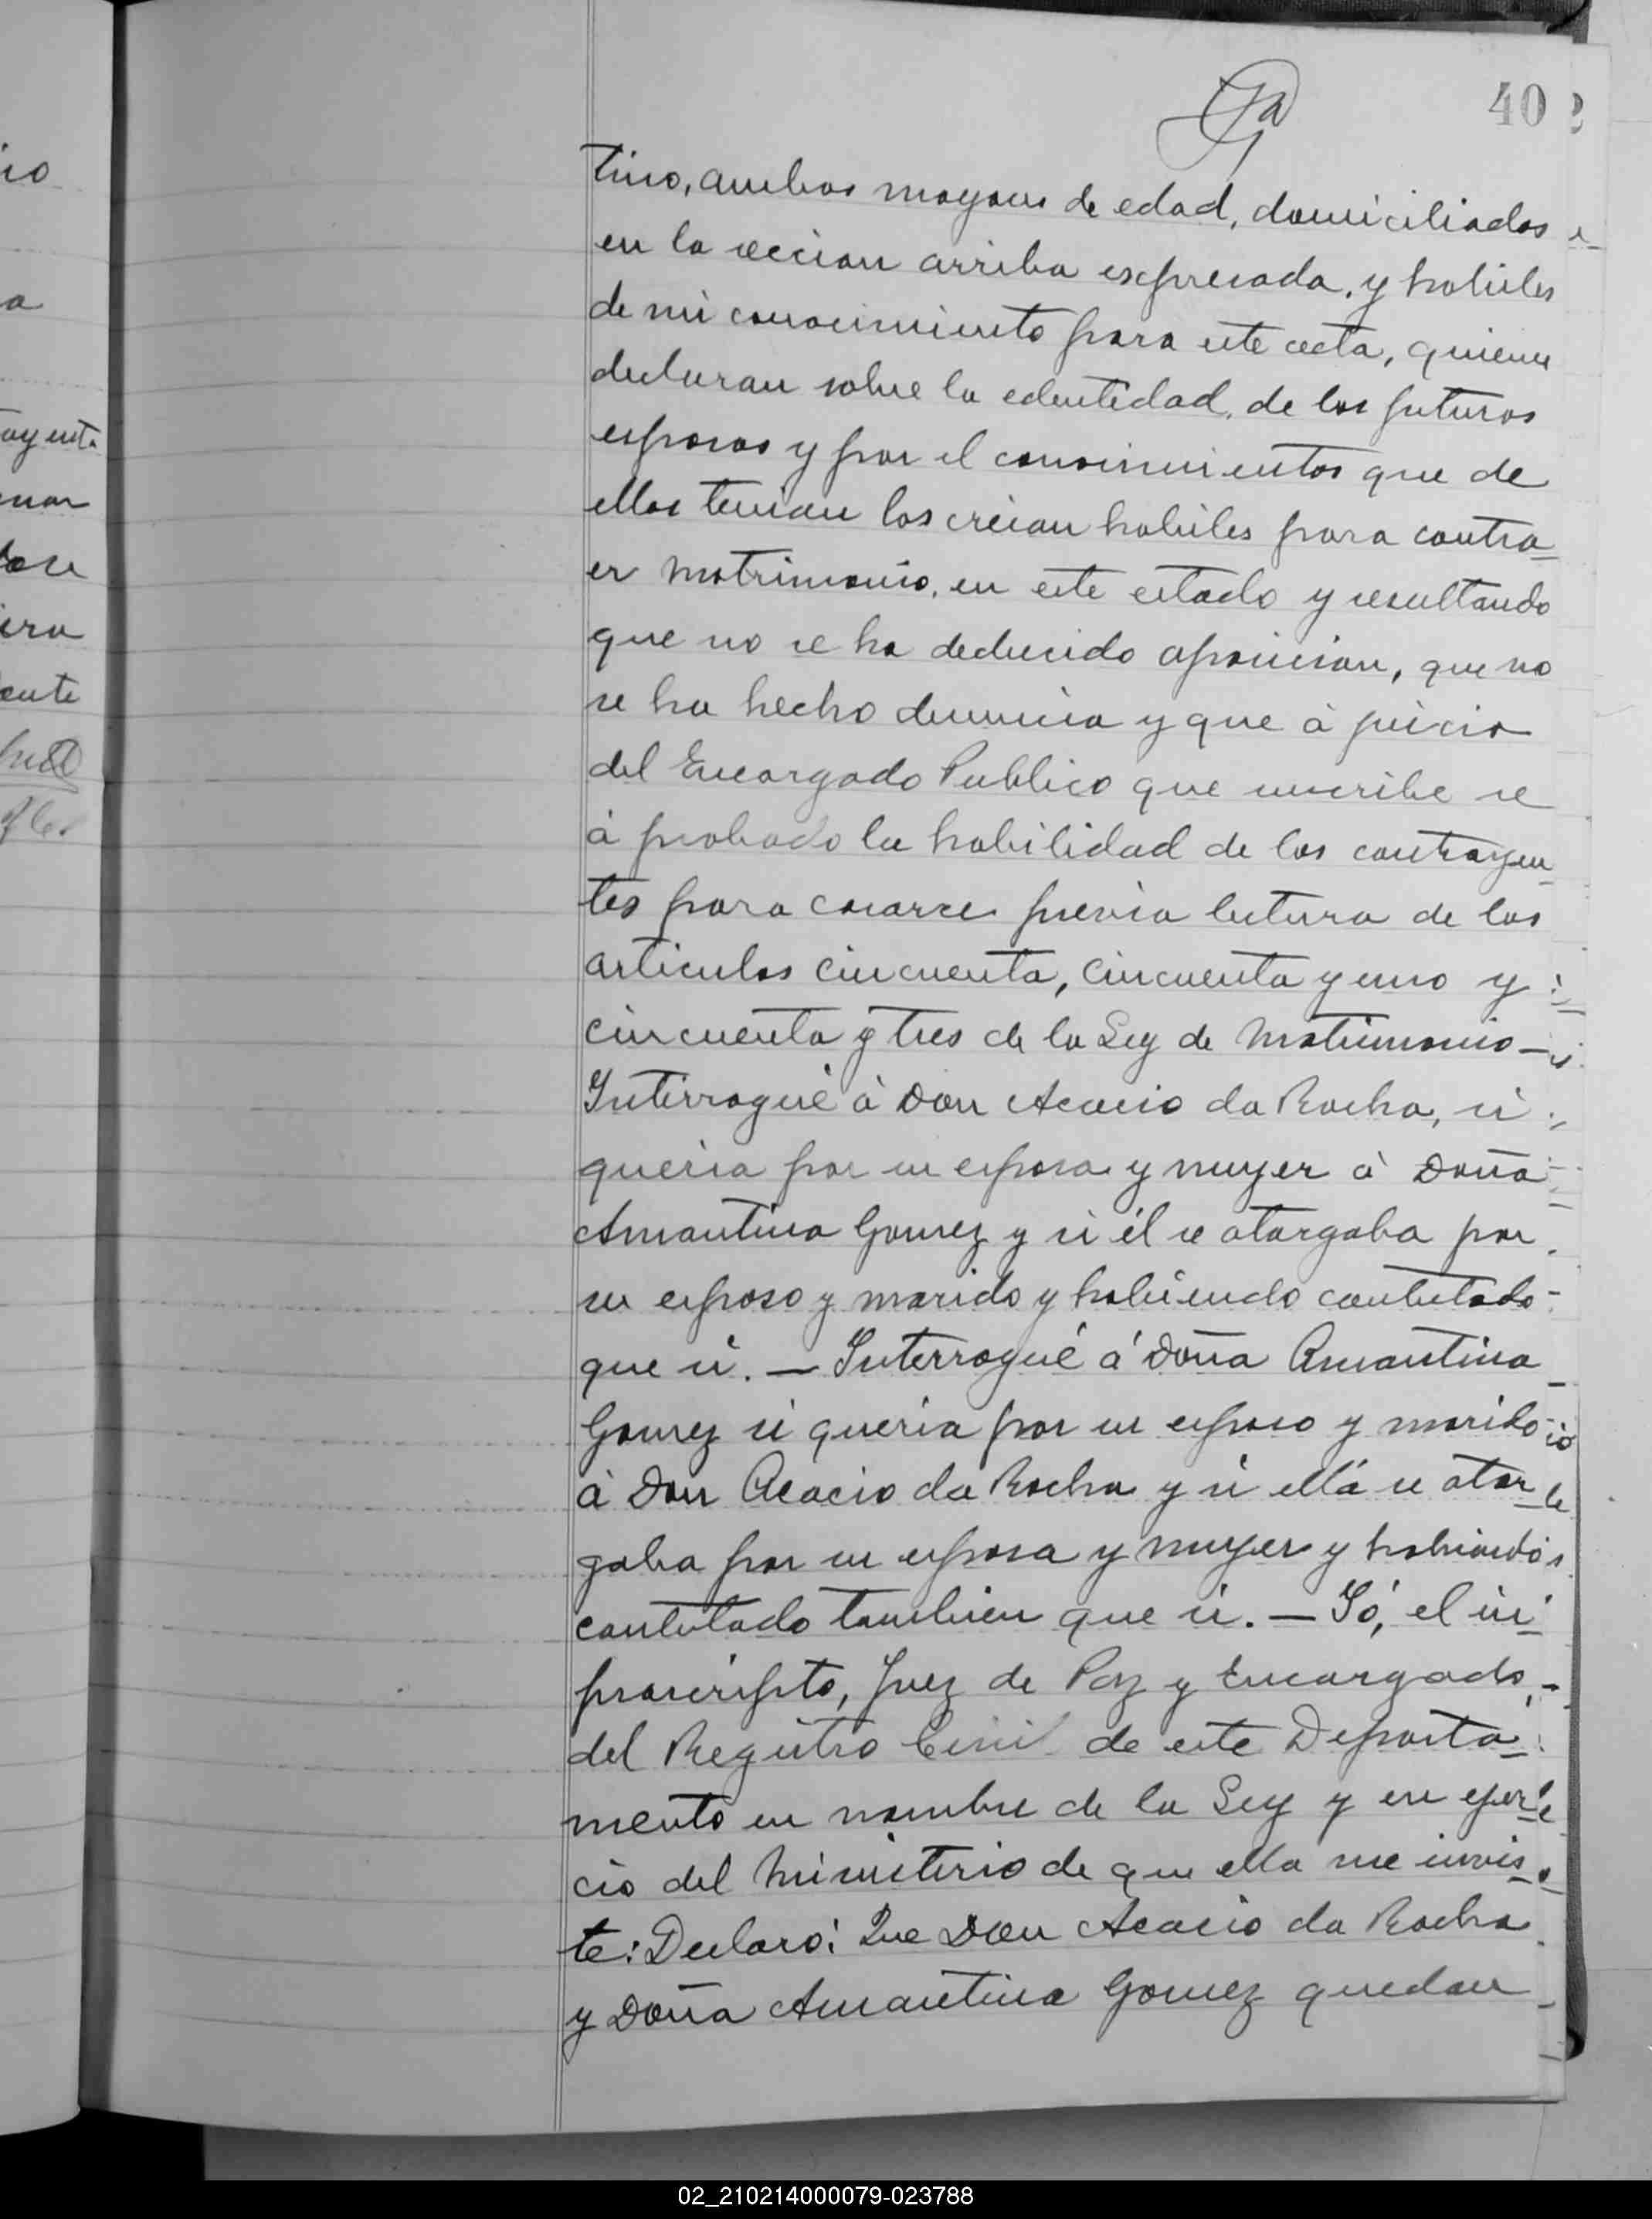 40
tino, ambos mayores de edad, domiciliados
en la seccion arriba espresada, y habiles
de mi conocimiento para este acta, quienes
declaran sobre la edentidad, de los futuros
esposos y por el conosimientos que de
ellos tenian los creian habiles para contra-
er matrimonio, en este estado y resultando
que no se ha deducido oposicion, que no
se ha hecho denuncia y que á juicio
del Encargado Publico que suscribe se
á probado la habilidad de los contrayen-
tes para casarse previa letura de los
articulos cincuenta, cincuenta y uno y
cincuenta y tres de la Ley de Matrimonio –
Interrogué á Don Acacio da Rocha, si
queria por su esposa y muger á Doña
Amantina Gomez y si él se otorgaba por
su esposo y marido y habiendo contestado
que si. – Interrogué á Doña Amantina
Gomez si queria por su esposo y marido
á Don Acacio da Rocha y si ella se otor-
gaba por su esposa y muger y habiendo
contestado tambien que si. – Yó, el in-
frascripto, Juez de Paz y Encargado
del Registro Civil de este Departa-
mento en nombre de la Ley y en ejer-
cio del Ministerio de que ella me invis-
te: Declaró: Que Don Acacio da Rocha
y Doña Amantina Gomez quedan
02_210214000079-023788